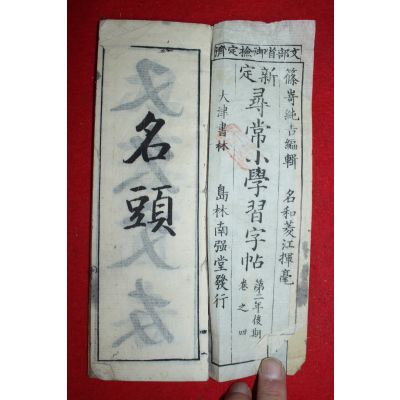 文部省御檢定濟
篠嵜純吉編輯　名和菱江揮毫
新定
尋常小學習字帖
第二年後期
卷之四
大津書林　島林南强堂發行
名頭